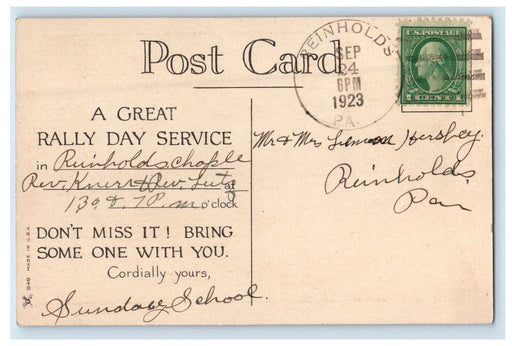 Post Card
REINHOLDS
SEP
24
6PM
1923
PA.
U.S. POSTAGE
1 CENT 1
A GREAT
RALLY DAY SERVICE
in Reinholds chaple
Rev. Knerr & Rev. Lutz
at
130 & 7 P.m o'clock
DON'T MISS IT! BRING
SOME ONE WITH YOU.
Cordially yours,
Sunday School.
Mr & Mrs Hershey.
Reinholds
Pa
049 MADE IN U.S.A.